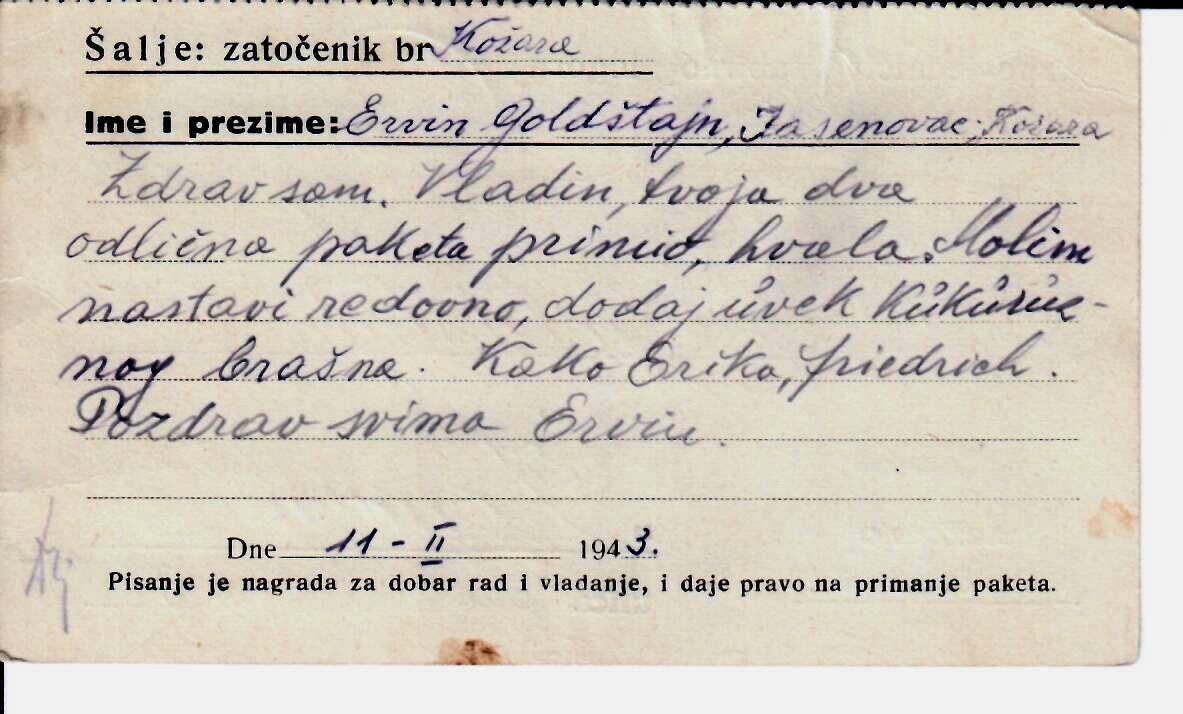 Šalje: zatočenik br Kožara
Ime i prezime: Ervin Goldštajn, Jasenovac, Kožara
Zdrav sam. Vladin, tvoja dva
odlična paketa primio, hvala. Molim
nastavi redovno, dodaj ůvek Kůkůruz-
nog brašna. Kako Erika, Friedrich.
Pozdrav svima Ervin.
Dne 11-II 1943.
Pisanje je nagrada za dobar rad i vladanje, i daje pravo na primanje paketa.